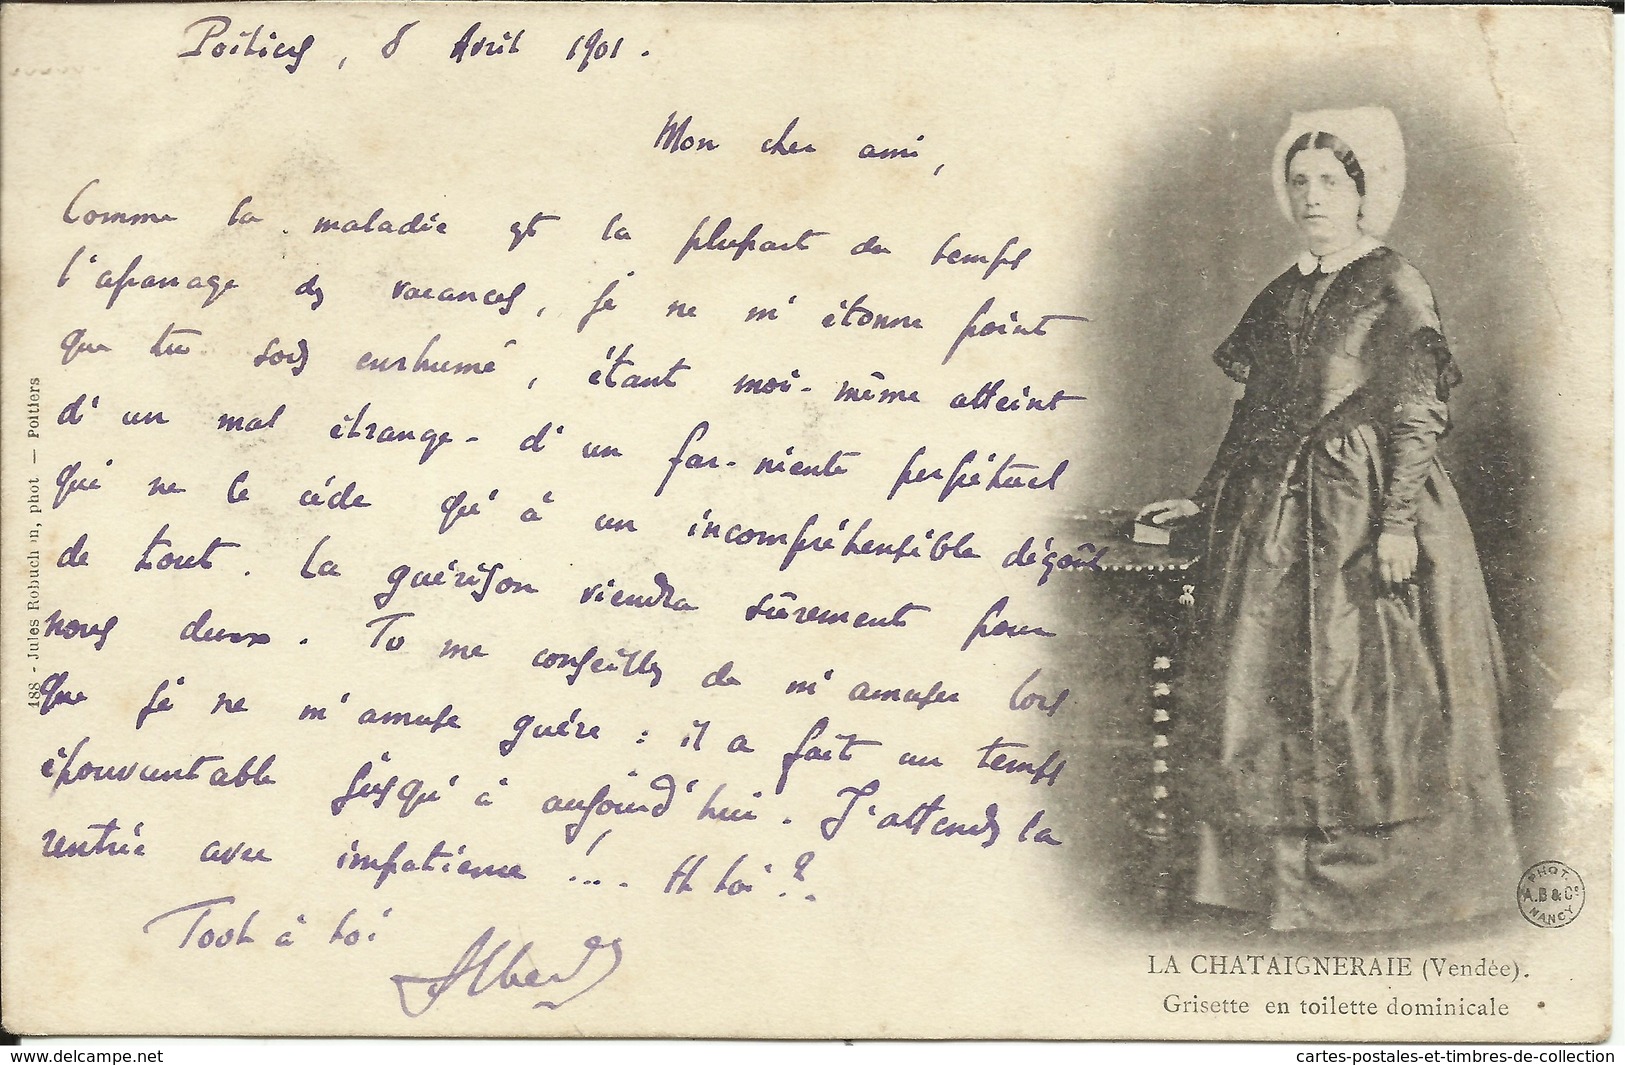 Poitiers, 8 Avril 1901.
Mon cher ami,
Comme la maladie est la plupart du temps
l'apanage des vacances, je ne m'étonne point
que tu sois enrhumé, étant moi-même atteint
d'un mal étrange - d'un far-niente perpétuel
qui ne le cède qu'à un incompréhensible dégoût
de tout. La guérison viendra sûrement pour
nous deux. Tu me conseilles de m'amuser lors
que je ne m'amuse guère : il a fait un temps
épouvantable jusqu'à aujourd'hui. J'attends la
rentrée avec impatience !... Et toi ?.
Tout à toi
Albert
188 - Jules Robuchon, phot — Poitiers
PHOT.
A.B & Cie
NANCY
LA CHATAIGNERAIE (Vendée).
Grisette en toilette dominicale
www.delcampe.net
cartes-postales-et-timbres-de-collection